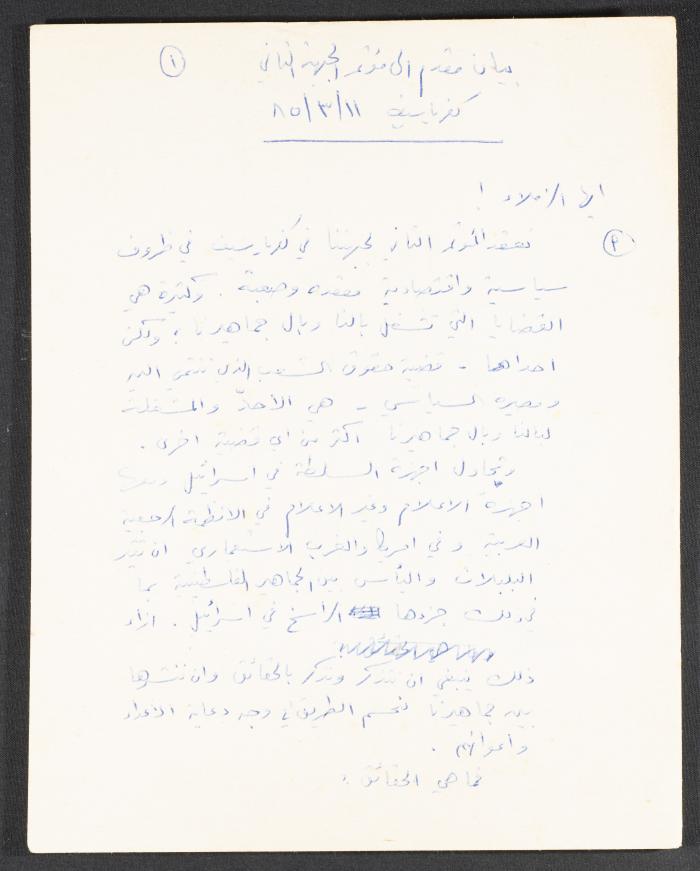 ١
بيان مقدم الى مؤتمر الجبهة الثاني
كفرياسيف ٨٥/٣/١١
ايها الزملاء !
٢
نعقد المؤتمر الثاني لجبهتنا في كفرياسيف في ظروف
سياسية واقتصادية معقده وصعبة . وكثيرة هي
القضايا التي تشغل بالنا وبال جماهيرنا ، ولكن
احداها - قضية حقوق الشعب الذي ننتمي اليه
ومصيره السياسي - هي الأحدّ والمشغلة
لبالنا وبال جماهيرنا اكثر من اي قضية اخرى .
وتحاول اجهزة السلطة في اسرائيل ومعها
اجهزة الاعلام وغير الاعلام في الانظمة الرجعية
العربية وفي امريكا والغرب الاستعماري ان تثير
البلبلات واليأس بين الجماهير الفلسطينية بما
في ذلك جزءها الراسخ في اسرائيل . ازاء
ذلك ينبغي ان نتذكر ونذكر بالحقائق وان ننشرها
بين جماهيرنا لحسم الطريق في وجه دعاية الاعداء
واعوانهم .
فما هي الحقائق :